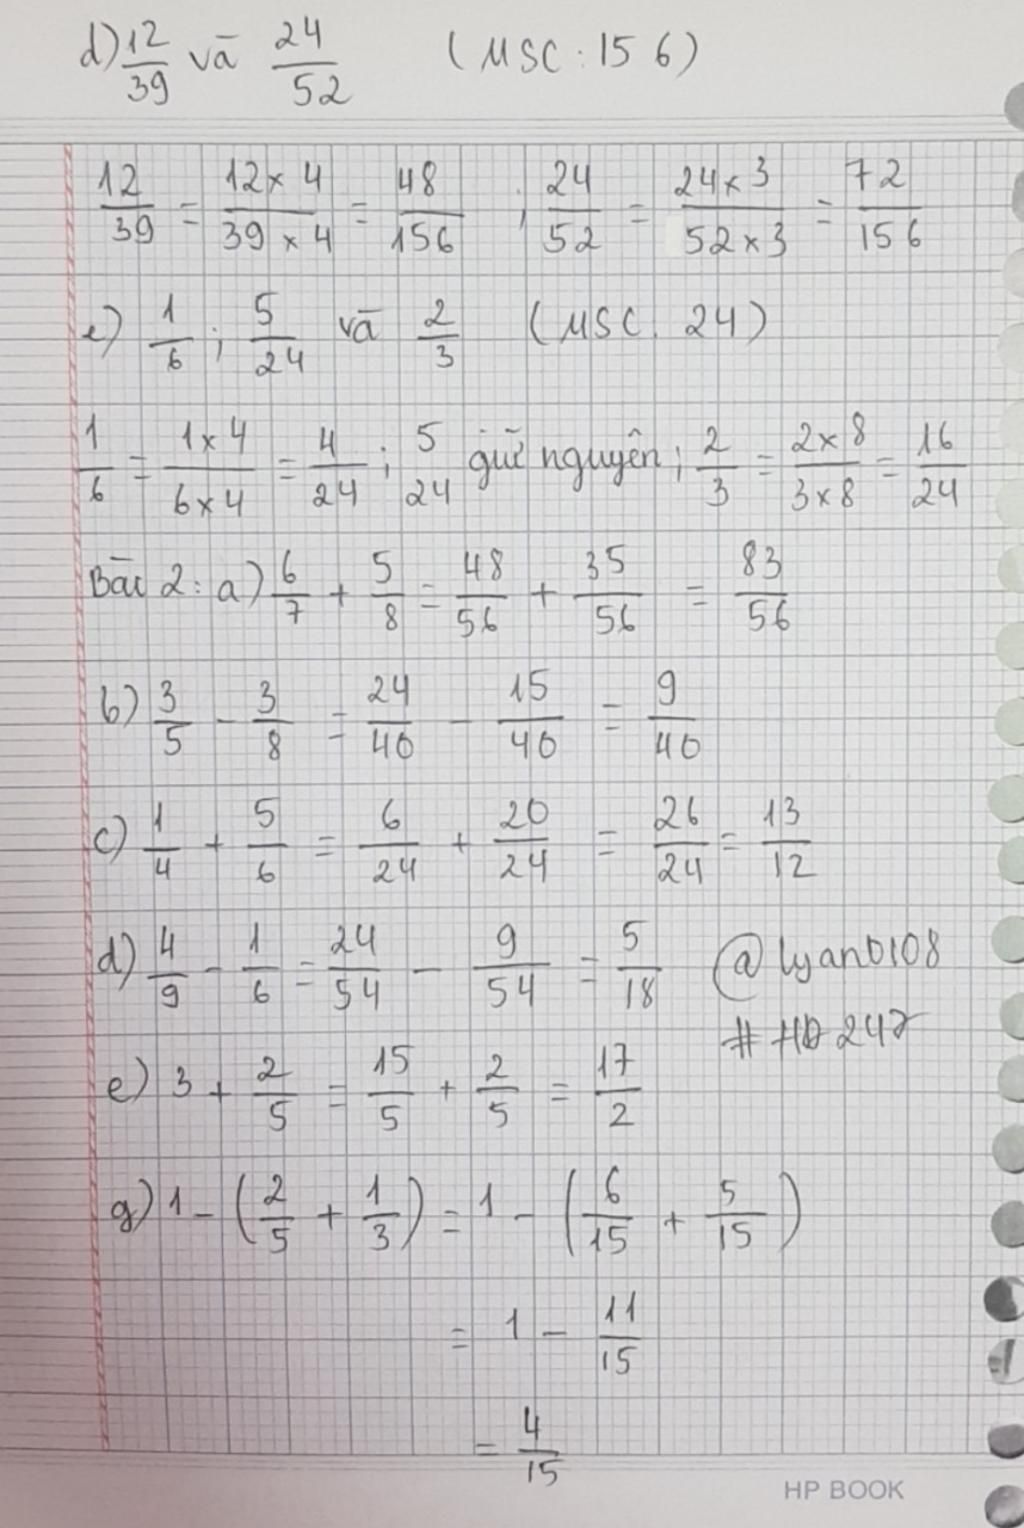 d) 12/39 và 24/52 (MSC: 156)
12/39 = 12 x 4/39 x 4 = 48/156 ; 24/52 = 24 x 3/52 x 3 = 72/156
e) 1/6 ; 5/24 và 2/3 (MSC. 24)
1/6 = 1 x 4/6 x 4 = 4/24 ; 5/24 giữ nguyên ; 2/3 = 2 x 8/3 x 8 = 16/24
Bài 2: a) 6/7 + 5/8 = 48/56 + 35/56 = 83/56
b) 3/5 - 3/8 = 24/40 - 15/40 = 9/40
c) 1/4 + 5/6 = 6/24 + 20/24 = 26/24 = 13/12
d) 4/9 - 1/6 = 24/54 - 9/54 = 5/18 @lyan0108
# HD 247
e) 3 + 2/5 = 15/5 + 2/5 = 17/2
g) 1 - (2/5 + 1/3) = 1 - (6/15 + 5/15)
= 1 - 11/15
= 4/15
HP BOOK